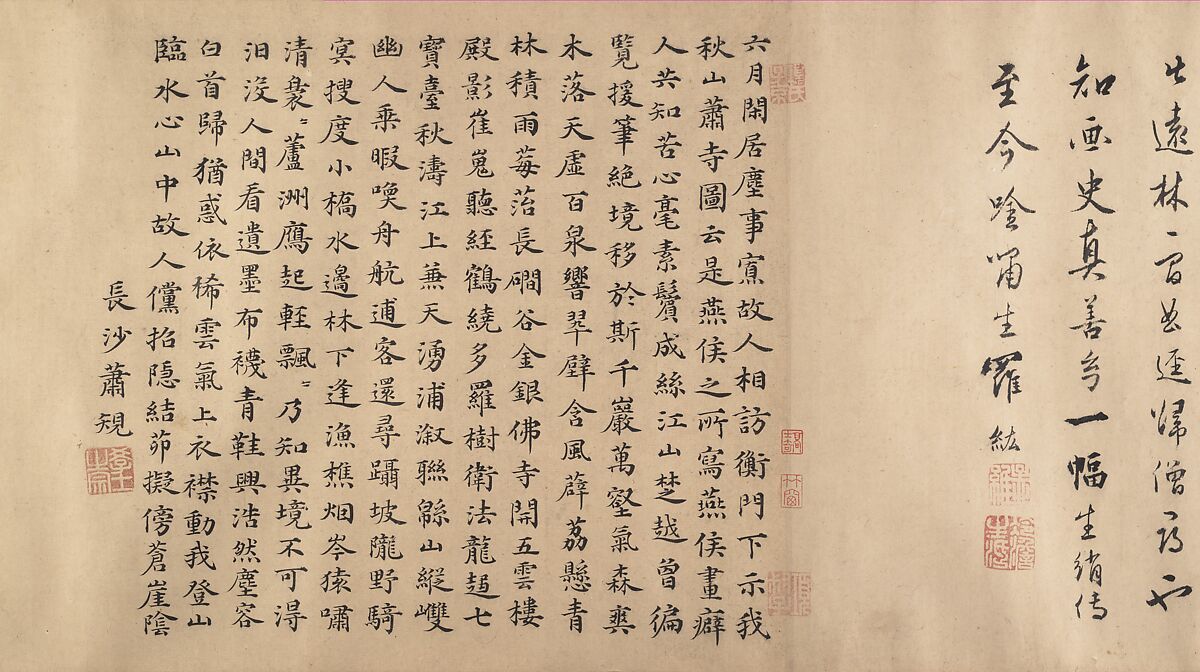 遠林一逕歸僧
知画史真善一幅生綃傳
至今唫嘯生羅紘
六月閑居塵事寡故人相訪衡門下示我
秋山蕭寺圖云是燕侯之所寫燕侯畫癖
人共知苦心毫素鬢成絲江山楚越曾徧
覽援筆絕境移於斯千巖萬壑氣森爽
木落天虛百泉響翠壁含風薜荔懸青
林積雨莓苔長磵谷金銀佛寺開五雲樓
殿影崔嵬聽經鶴繞多羅樹衛法龍超七
寶臺秋濤江上兼天湧浦溆聯緜山縱
幽人乘暇喚舟航逋客還尋躡坡隴野騎
冥搜度小橋水邊林下逢漁樵烟岑猿嘯
清裊〻蘆洲鴈起輕飄〻乃知異境不可得
汩沒人間看遺墨布襪青鞋興浩然塵容
白首歸猶惑依稀雲氣上衣襟動我登山
臨水心山中故人儻招隱結茆擬傍蒼崖陰
長沙蕭規